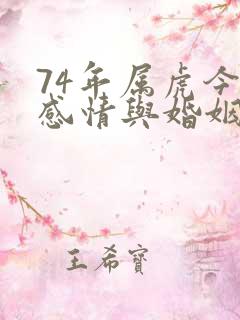 74年属虎今
感情與婚姻
王希寶